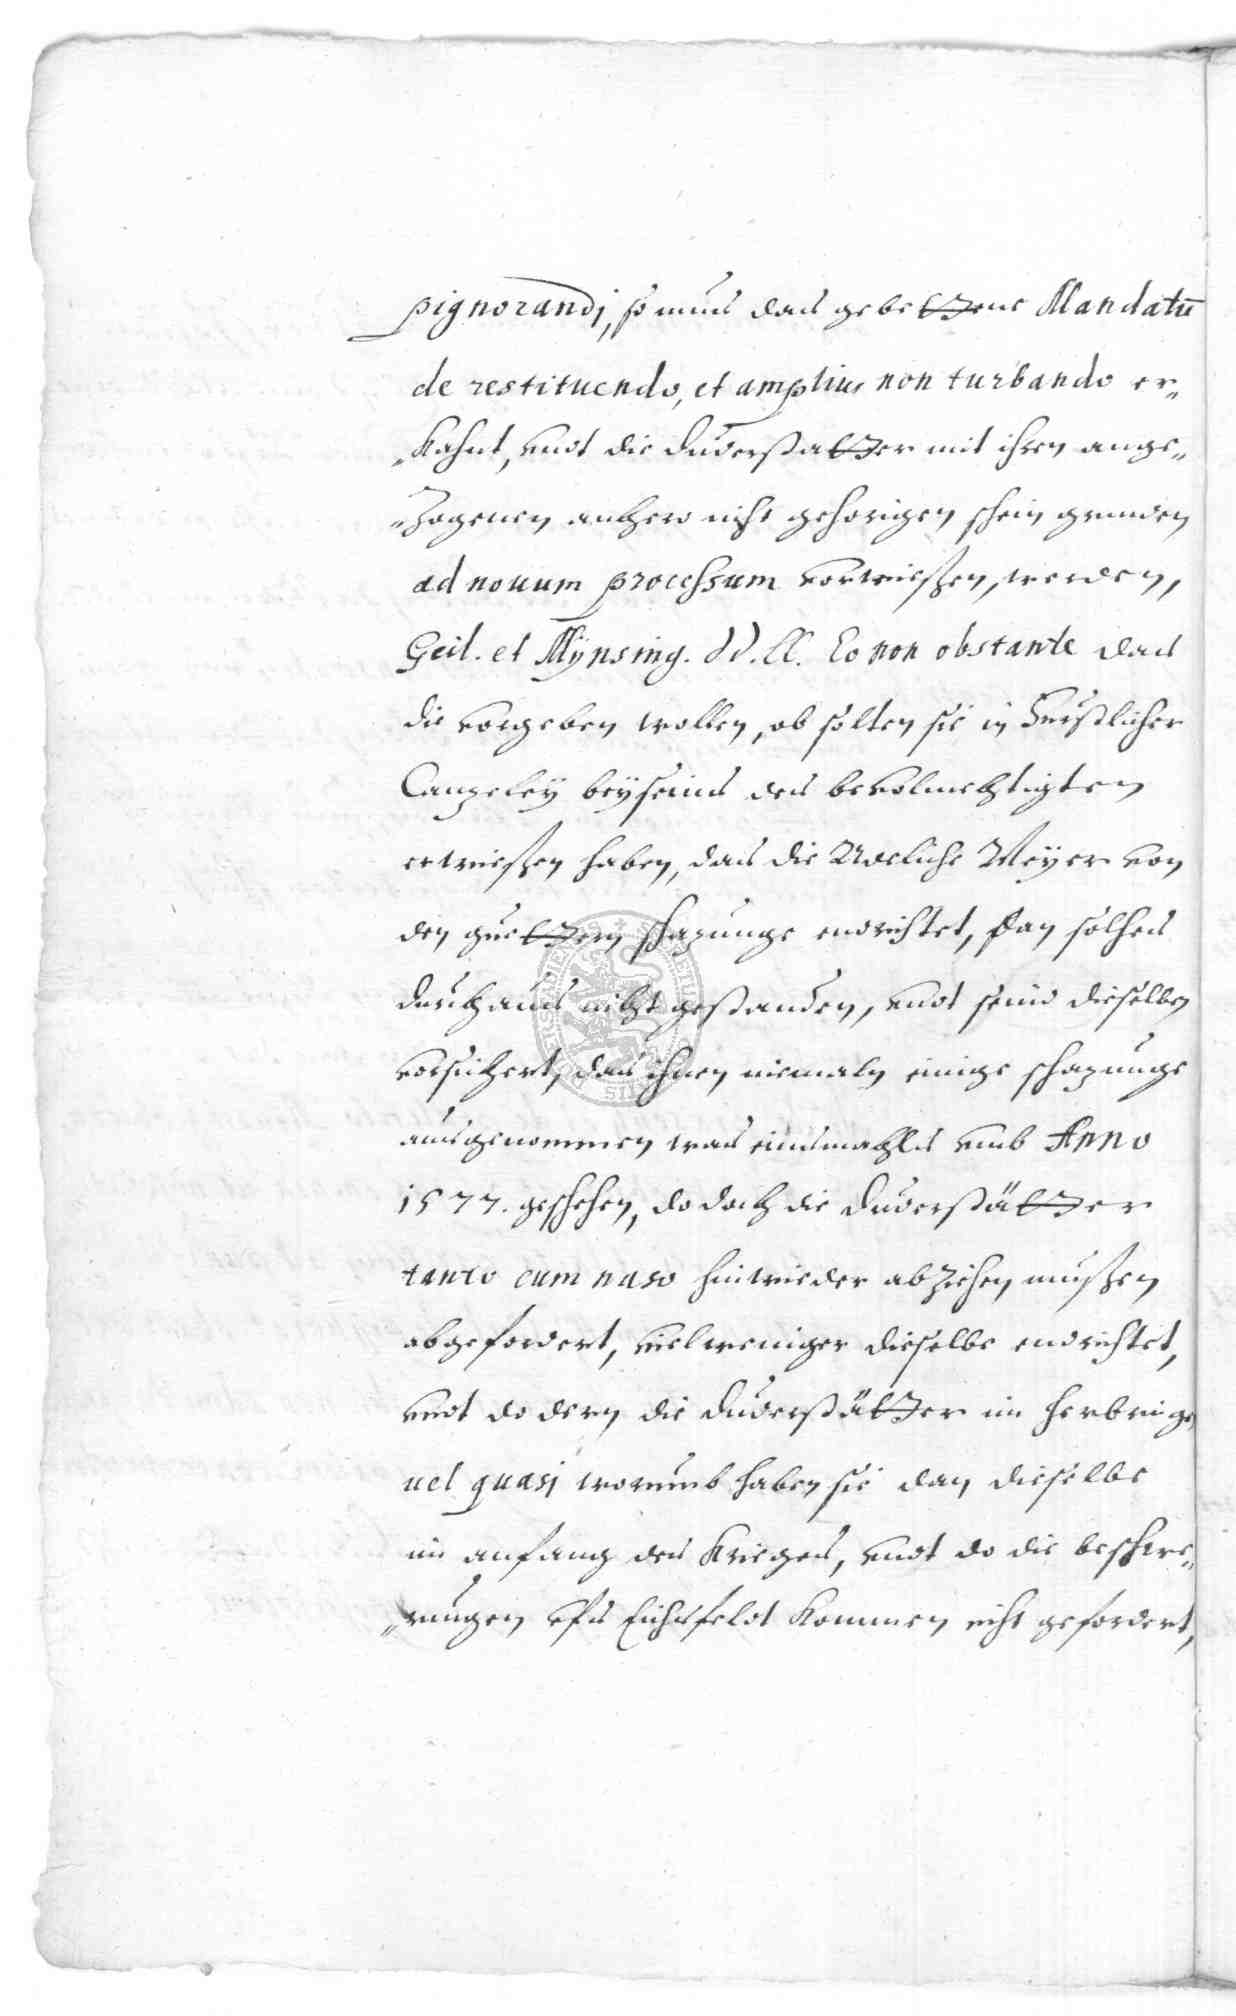 pignorandj, so mus das gebettene Mandatū
de restituendo, et amplius non turbando er„
„kahnt, undt die Duderstatter mit ihren ange„
„zogenen anhero nicht gehorigen schein grunden
ad nouum processum verwiessen, werden,
Geil. et Mÿnsing. dd. ll. Eo non obstante das
die vorgeben wollen, ob solten sie in Furstlicher
Canzeleÿ beÿseins des bevolmechtigten
erwiessen haben, das die Adeliche Meÿer von
den guettern schazunge endrichtet, dan solches
durchaus nicht gestanden, undt seind dieselben
versichert, das ihnen niemaln einige schazunge
ausgenommen was einsmahls umb Anno
1577. geschehen, do doch die Duderstätter
tanto cum naso hinwieder abziehen mussen
abgefordert, vielweniger dieselbe endrichtet,
undt do dern die Duderstätter im herbringen
uel quasj worumb haben sie dan dieselbe
im anfang des Krieges, undt do die beschwe„
„rungen ufs Eichsfeldt kommen nicht gefordert,